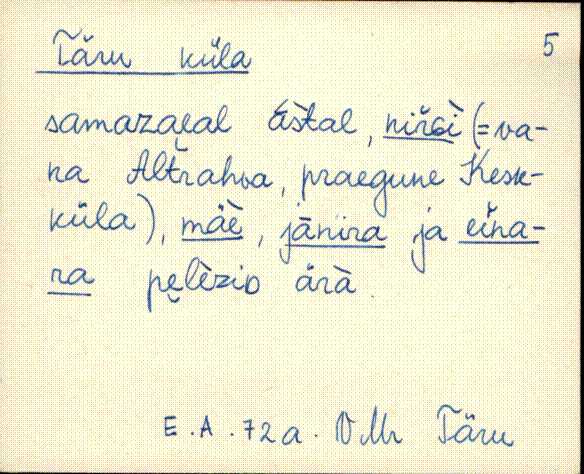 Täru küla 5
samazaeal äštal, niřsì (= va-
na Altrahva, praegune Kesk-
küla), mäè, jānira ja eina-
ra pęlèzid ärà.
E.A. 72a. VMr Täru